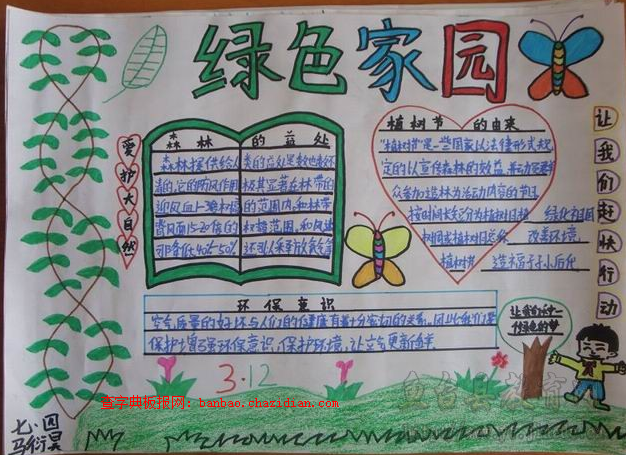 绿色家园
爱护大自然
森林的益处
森林提供给人类的益处是数也数不
清的,它的防风作用极其显著在林带的
迎风面
的范围内,和林带
背风面15-20倍的
树梢范围,和风速
可降低40%-50%
植树节的由来
"植树节"是一些国家以法律形式规
定的以宣传森林的效益,并动员群
众参加造林为活动内容的节日
按时间长短可分为植树日植 绿化祖国
树周或植树月总称 改善环境,
植树节 造福子孙后代
让我们赶快行动
环保意识
空气质量的好坏与人们的健康有着十分密切的关系,
保护
增强环保意识,保护环境,让
更新鲜
3.12
七.四
马衍昊
童字典板报网: banbao.chazidian.com